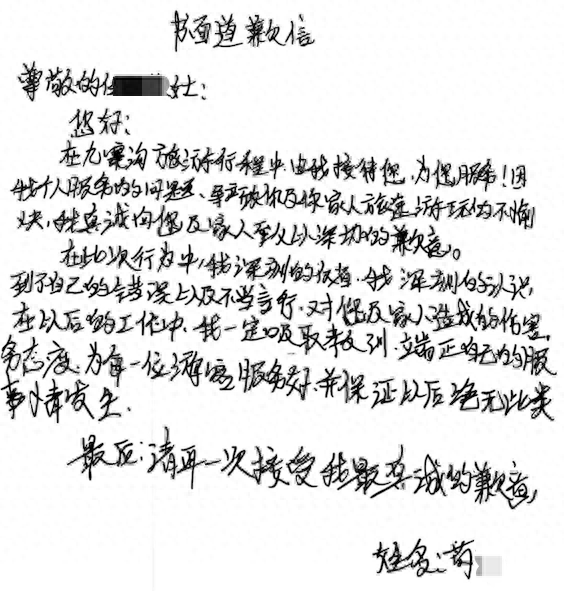 书面道歉信
尊敬的任女士:
您好:
在九寨沟旅游行程中由我接待您,为您服务!因
我个人服务的问题,导致你及你家人旅途游玩的不愉
快,我真诚向您及家人至以深切的歉意。
在此次行为中,我深刻的反省,我深刻的认识
到了自己的错误以及不当言行,对您及家人造成的伤害。
在以后的工作中,我一定吸取教训,端正自己的服
务态度,为每一位游客服务好,并保证以后绝无此类
事情发生.
最后:请再一次接受我最真诚的歉意,
姓名:苟